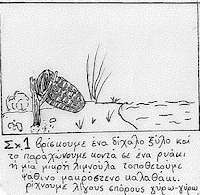 Σχ.1 Βρισκουμε ένα δίχαλο ξύλο και
το παραχώνουμε κοντα σε ένα ρυάκι
ή μια μικρή λιμνούλα τοποθετούμε
ψάθινο μακρόστενο καλαθάκι.
ρίχνουμε λίγους σπόρους γύρω-γύρω